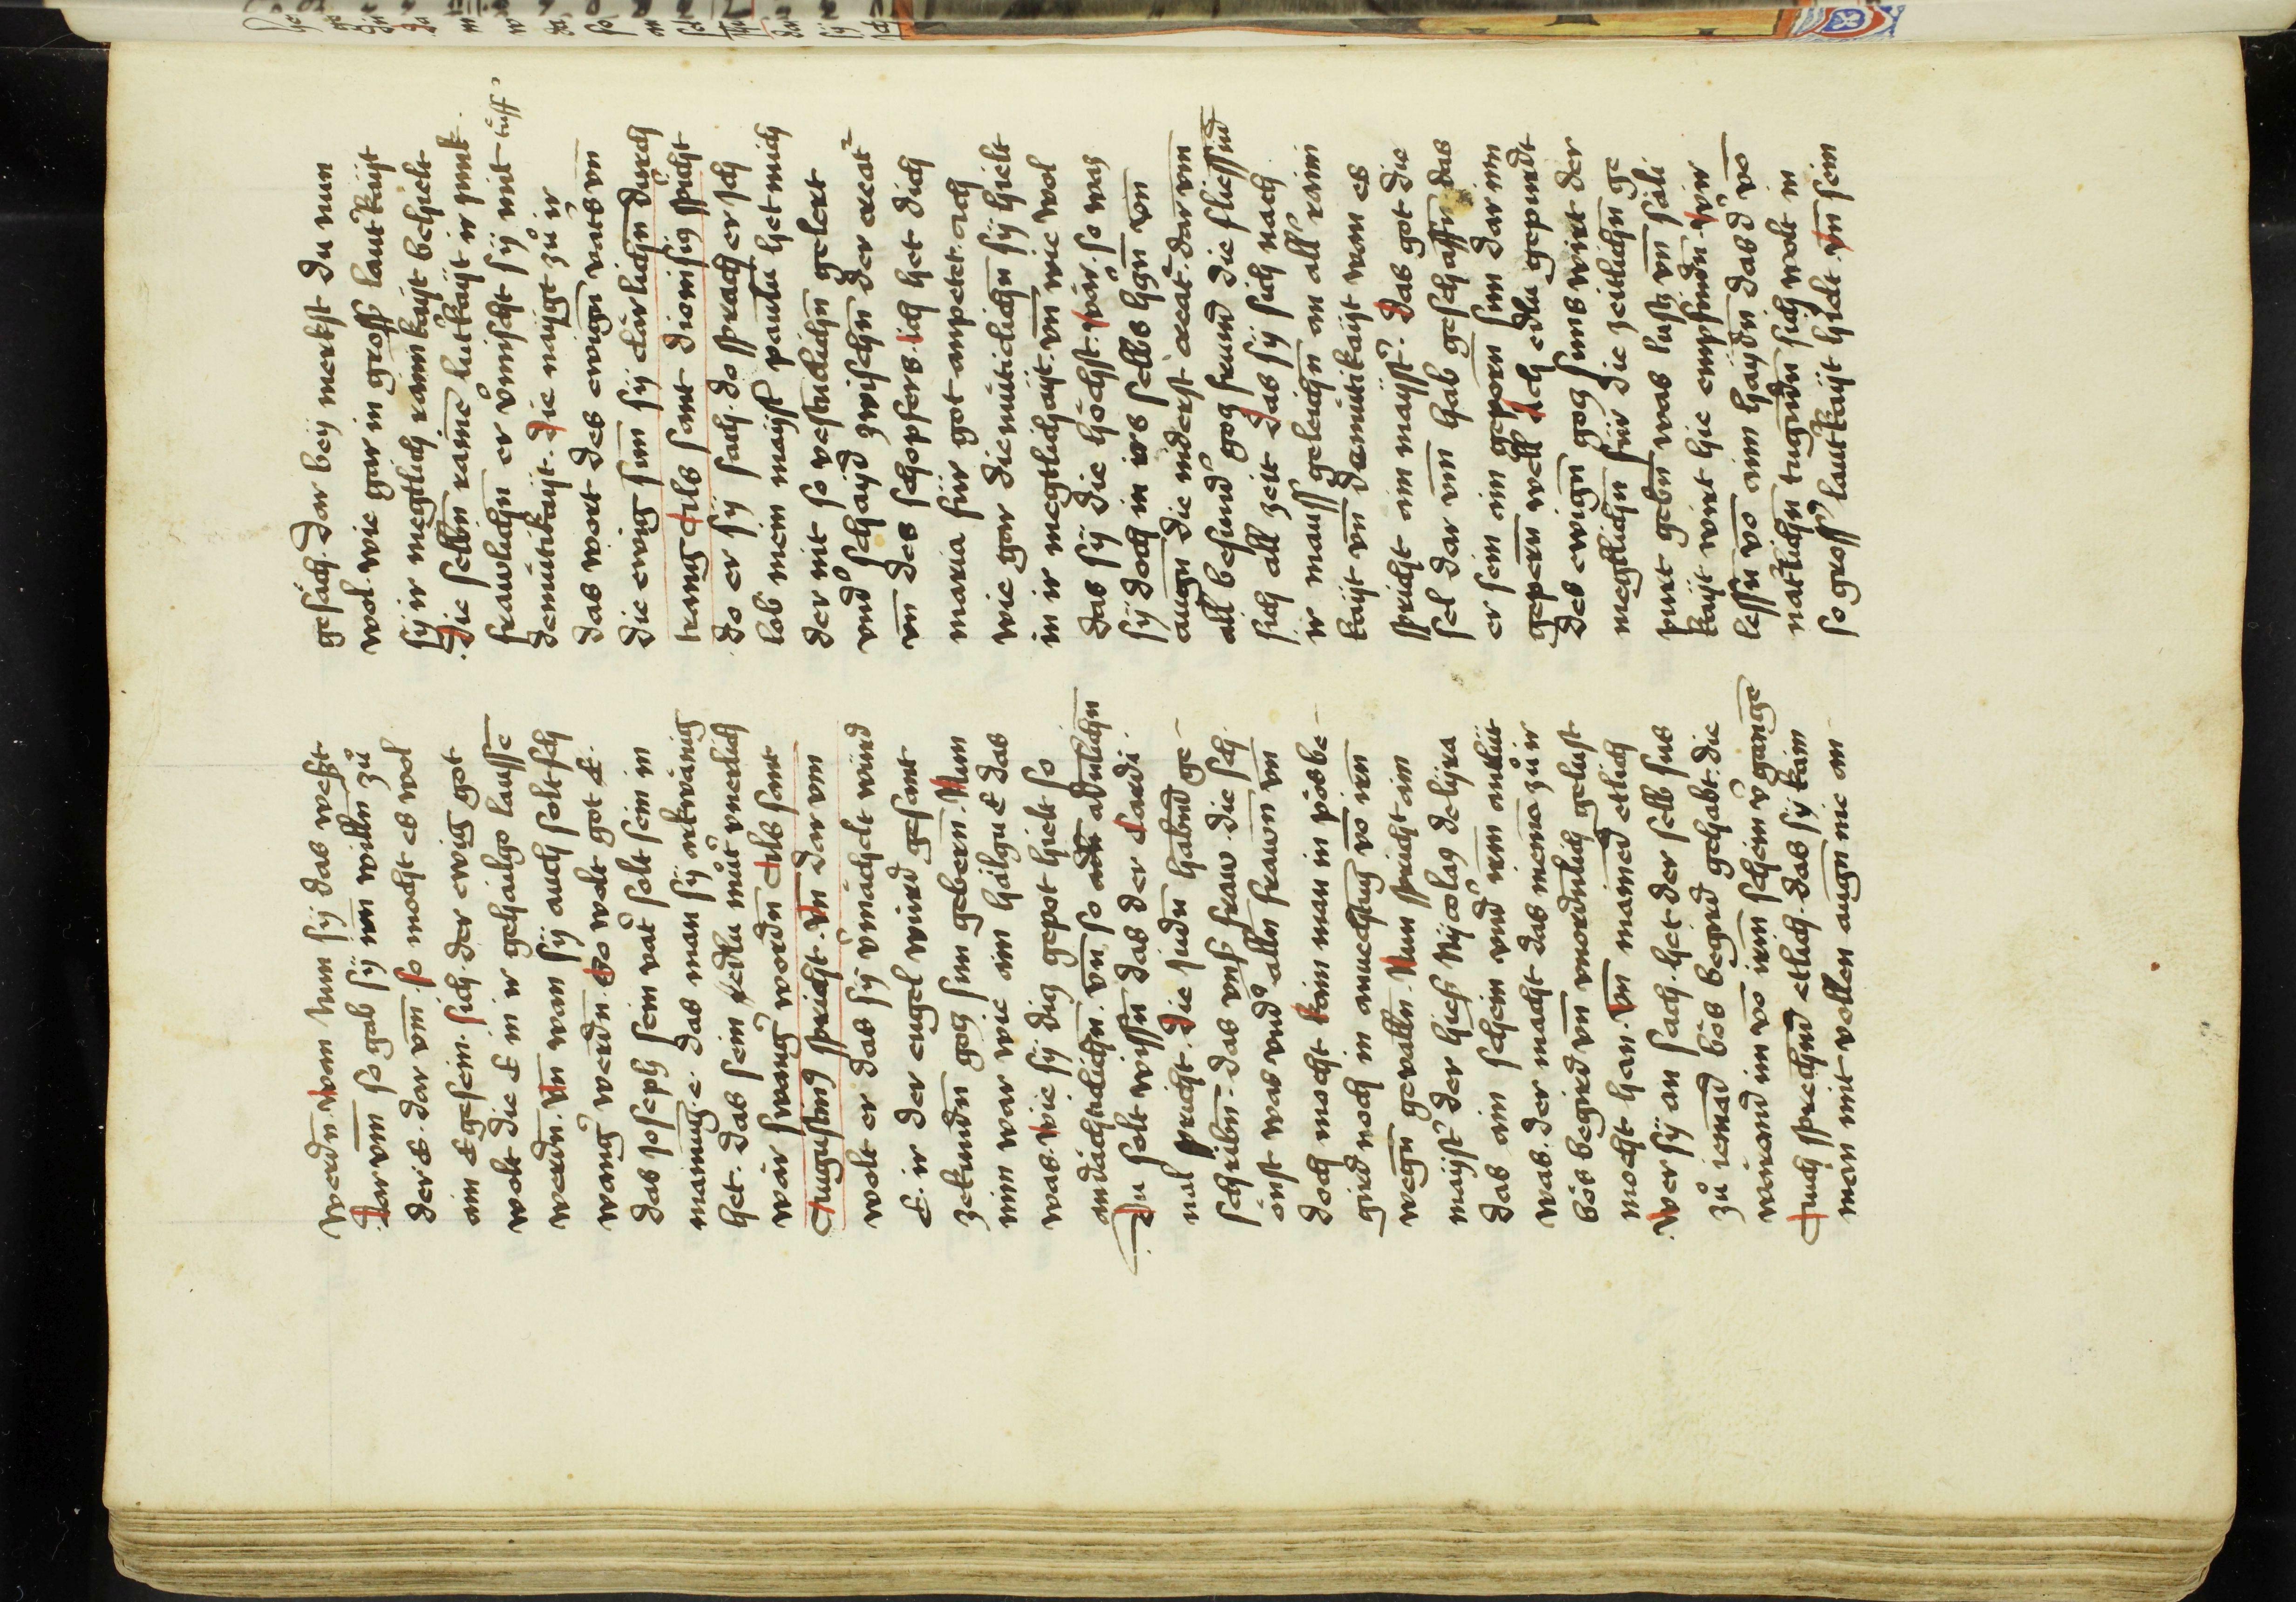 werdn. wan Nun sÿ das west
Dar vm̄ so gab sÿ irn willn zů
der E. dar vm̄. so mocht es wol
ain E gesein. Sich der ewig got
wolt die E in ir gehailgo lausse
werdn. vn̄ wan sÿ auch solt sch
wang̕ werdn. Do wolt got E.
das Joseph sein vat̕ solt sein in
mainug. e. das man sÿ arkwänig
het. das sein můt̕ unerlich
wär swang̕ wordn Als sant
Augustinus spricht. vn̄ dar vm
wolt er das sÿ v̕mächelt würd
E. ir der engel würd gesant
zekundn gotz sun gebern. Nun
nim war wie ain hälgu E das
was. wie sÿ diz gepot hielt so
andächticlichn. vn̄ so adulichn
Du solt wissn das der Cardi
nal spricht. Die Judn habnd ge
schribn. das vnß fraw. die sch
önst was vnd̕ alln frawn vn̄
doch mocht kain man in pös be
gird noch in anvechtug vo irn
wegn gevalln. Nun spricht ain
maÿst̕ der hieß Nÿcolaus delÿra
das ain schein vnd̕ irem antlüt
was. der macht das nieme zů ir
bös begird vn̄ vnordnlich gelust
mocht han. vn̄ mained etlich
wer sÿ an sach. het der selb sus
zů iemād bös begird gehabt. die
wärend im vo irem schein v̕gange
Auch sprechnd etlich. das sÿ kain
man mit vollen augn nie an
gesach. Dar beÿ merkst du nun
wol. wie gar in gross lautkaÿt
sÿ ir megtlich rainikaÿt behielt
Die selbn raine lut̕kaÿt ir junk
frawlichn er v̕mischt sÿ mit tüff̕
demütikaÿt. Die naÿgt zů ir
das wort des ewign vaters vn̄
die ewig sun sÿ clärlichn durch
trang Als sant Dionisius spricht
do er sÿ sach. do sprach er sch
lob mein maÿst̕ paulu het mich
der nit so vestnclichn gelert
vnd̕schaÿd zwischn der creat̕
vn̄ des schopfers. Sich het dich
maria für got anpetet. ach
wie gar diemüticlichn sÿ hielt
in ir megtlichaÿt. vn̄ wie wol
das sÿ die höchst wär. so was
sÿ doch in irs selbs hgn vn̄
augn die niderst creat̕. dar vm̄
all besund̕ gotz frund die fliessnd
sich all zeit. Das sÿ sich nach
ir mauss geleichn an all̕ raini
kaÿt vn̄ demütikaÿt wan es
spricht ain maÿst̕. Das got die
sel dar vm̄ hab geschaffn das
er sein ain geporn sun dar inn
gepern well. Ach edlu gepurdt
des ewign gotz suns wirt der
megtlichn für die zeitlichn ge
purt gebn was lustz vn̄ säli
kaÿt wirt hie empfindn. wir
lessn vo aim haÿdn das d̕ vo
nat̕lichn tugendn sich wolt in
so gross̕ lautkaÿt hielt. vn̄ sein